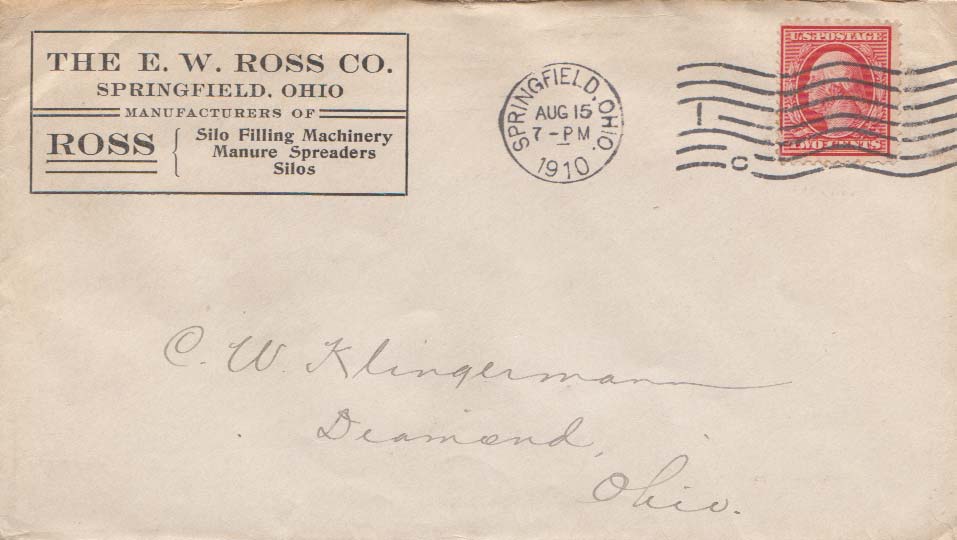 THE E. W. ROSS CO.
SPRINGFIELD, OHIO
MANUFACTURERS OF
ROSS { Silo Filling Machinery
Manure Spreaders
Silos
SPRINGFIELD, OHIO.
AUG 15
7-PM
1910
1
C
U.S. POSTAGE
TWO CENTS
C. W. Klingermann
Diamond,
Ohio.